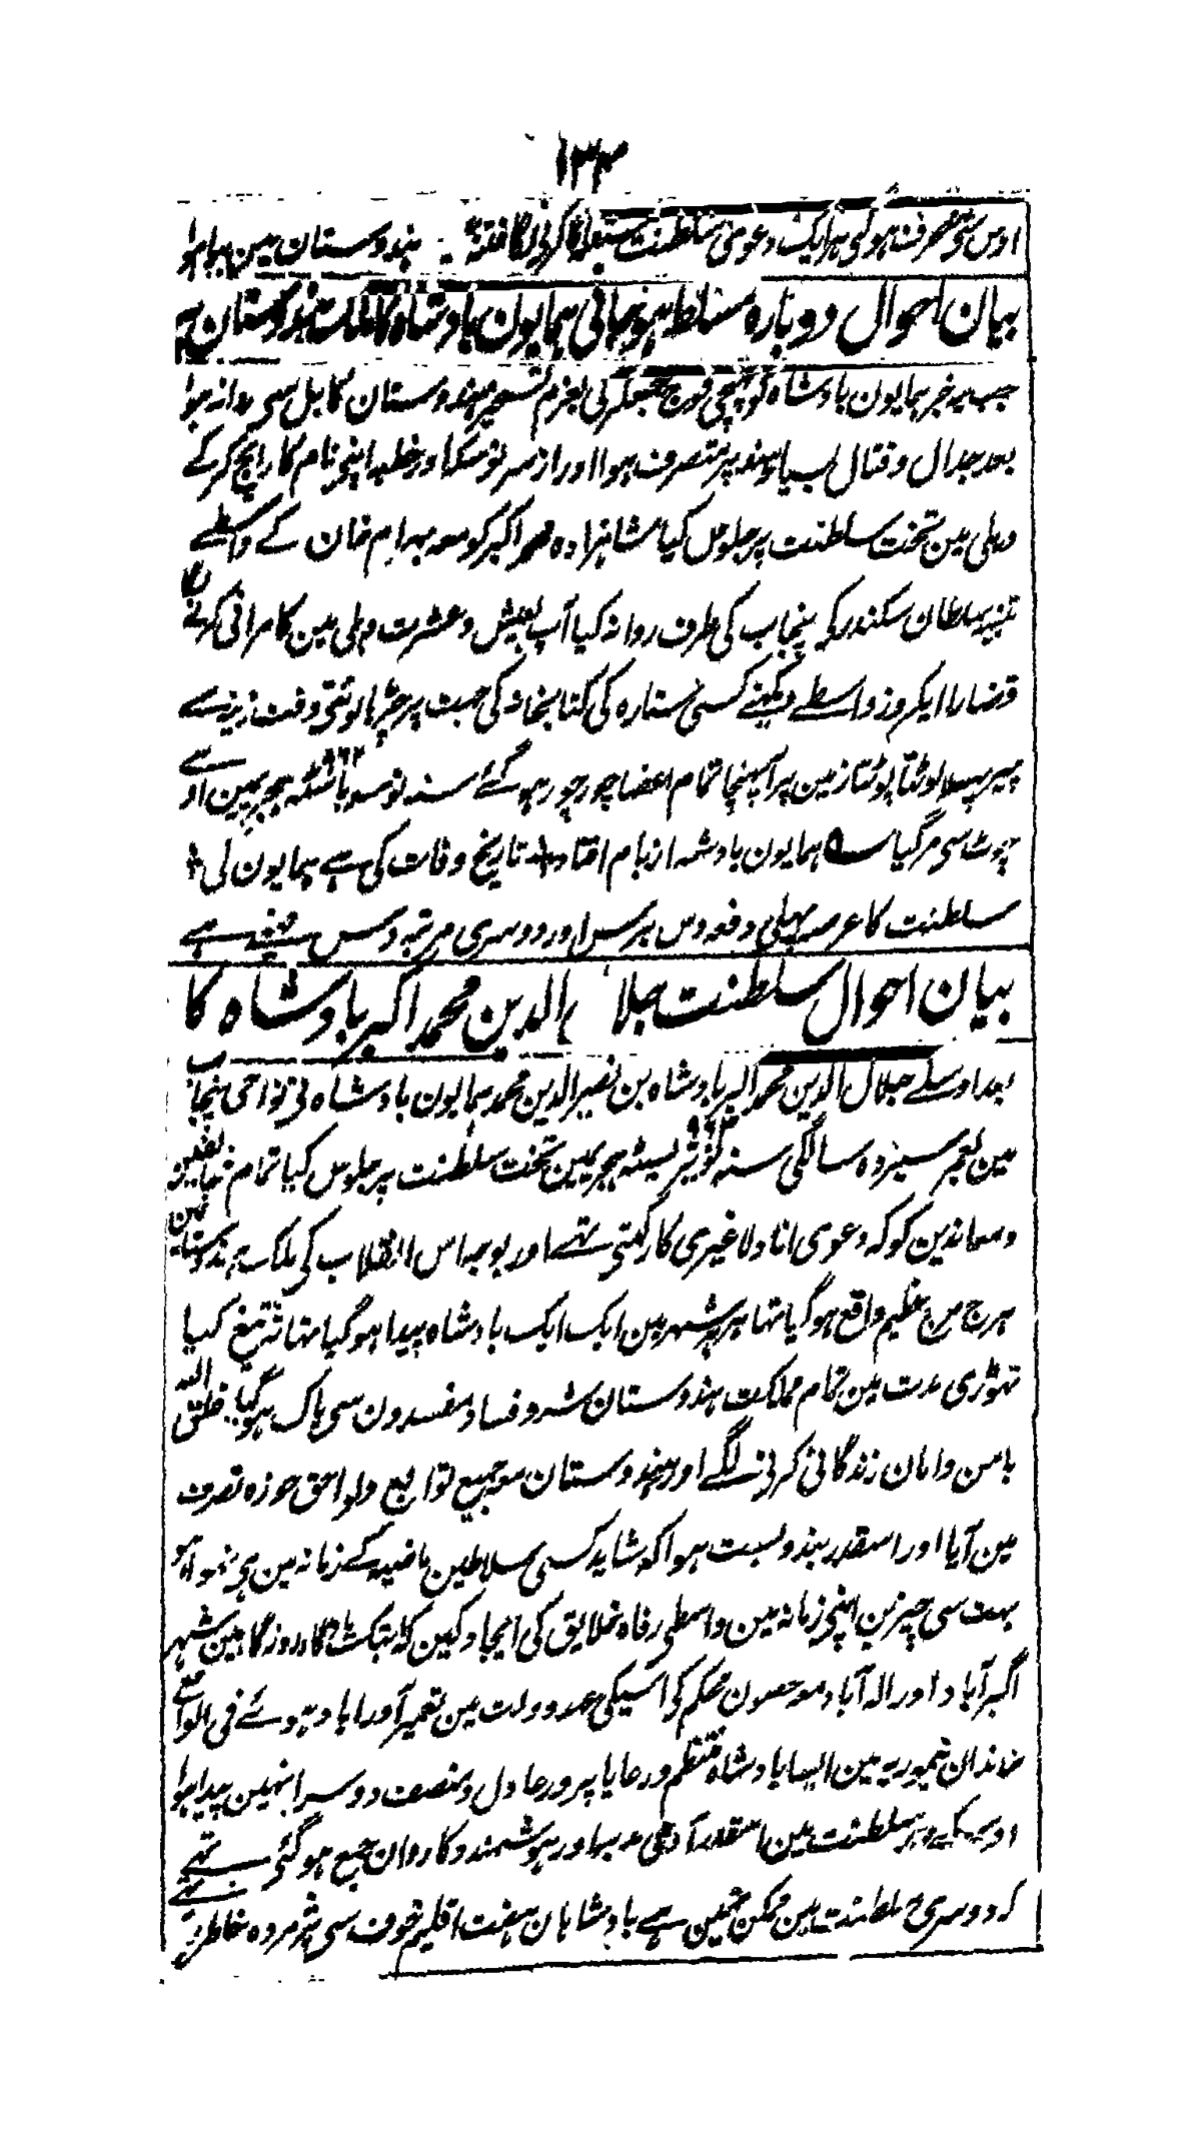 ۱۳۴
اوس سی منحرف ہوئی ہر ایک دعوی سلطنت کرنی لگا فتنہ ہندوستان مین برپا ہوا
بیان احوال دوبارہ مسلط ہو جانی ہمایون بادشاہ کا ملک ہندوستان پر
جب یہ خبر ہمایون بادشاہ کو پہنچی فوج جمع کر کی بعزم تسخیر ہندوستان کابل سی روانہ ہوا
بعد جدال و قتال بسیار ہند پر متصرف ہوا اور از سر نو سکہ اور خطبہ اپنی نام کا رایج کر کے
دہلی مین تخت سلطنت پر جلوس کیا شاہزادہ محمد اکبر کو معہ بہرام خان کے واسطے
تنبیہ سلطان سکندر کی پنجاب کی طرف روانہ کیا آپ بعیش و عشرت دہلی مین کامرانی کرنے لگا
قضارا ایکروز واسطے دیکہنے کسی ستارہ کی کتابخانہ کی چہت پر چڑہا لوٹتی وقت زینہ سے
پیر پہسلا لوٹتا پوٹتا زمین پر آپہنچا تمام اعضا چور چور ہو گئے سنہ نوسو باسٹھ ۹۶۲ ہجریمین اوسے
چوٹ سی مر گیا ہمایون بادشہ از بام افتاد تاریخ وفات کی ہے ہمایون کی
سلطنت کا عرصہ پہلی دفعہ دس برس اور دوسری مرتبہ دس مہینے ہے
بیان احوال سلطنت جلال الدین محمد اکبر بادشاہ کا
بعد اوسکے جلال الدین محمد اکبر بادشاہ بن نصیر الدین محمد ہمایون بادشاہ نی نواحی پنجاب
مین بعمر سیزدہ سالگی سنہ نوسو ترسیٹھ ۹۶۳ ہجریمین تخت سلطنت پر جلوس کیا تمام مخالفین
و معاندین کو کہ دعوی انا و لا غیری کا رکہتی تہے اور بوجہ اس انقلاب کی ملک ہندوستان مین
ہرج مرج عظیم واقع ہو گیا تہا ہر ہر شہر مین ایک ایک بادشاہ پیدا ہو گیا تہا تہ تیغ کیا
تہوڑی مدت مین تمام مملکت ہندوستان شر و فساد مفسدون سی پاک ہو گیا خلق اللہ
بامن و امان زندگانی کرنی لگے اور ہندوستان معہ جمیع توابع و لواحق حوزہ تصرف
مین آیا اور اسقدر بندوبست ہوا کہ شاید کسی سلاطین ماضیہ کے زمانہ مین ہی نہوا ہو
بہت سی چیزین اپنی زمانہ مین واسطی رفاہ خلایق کی ایجاد کین کہ ابتک یادگار روزگار ہین شہر
اکبرآباد اور الہ آباد معہ حصون محکم کی اسیکی عہد دولت مین تعمیر آور اباد ہوئے فی الواقع
خاندان تیموریہ مین ایسا بادشاہ منتظم و رعایا پرور عادل و منصف دوسرا نہین پیدا ہوا
اوسکے دور سلطنت مین اسقدر آدمی مدبر اور ہوشمند و کاروان جمع ہو گئی تہے
کہ دوسری سلطنت مین ممکن نہین ہے بادشاہان ہفت اقلیم خوف سی پژمردہ خاطر رہتے تہے